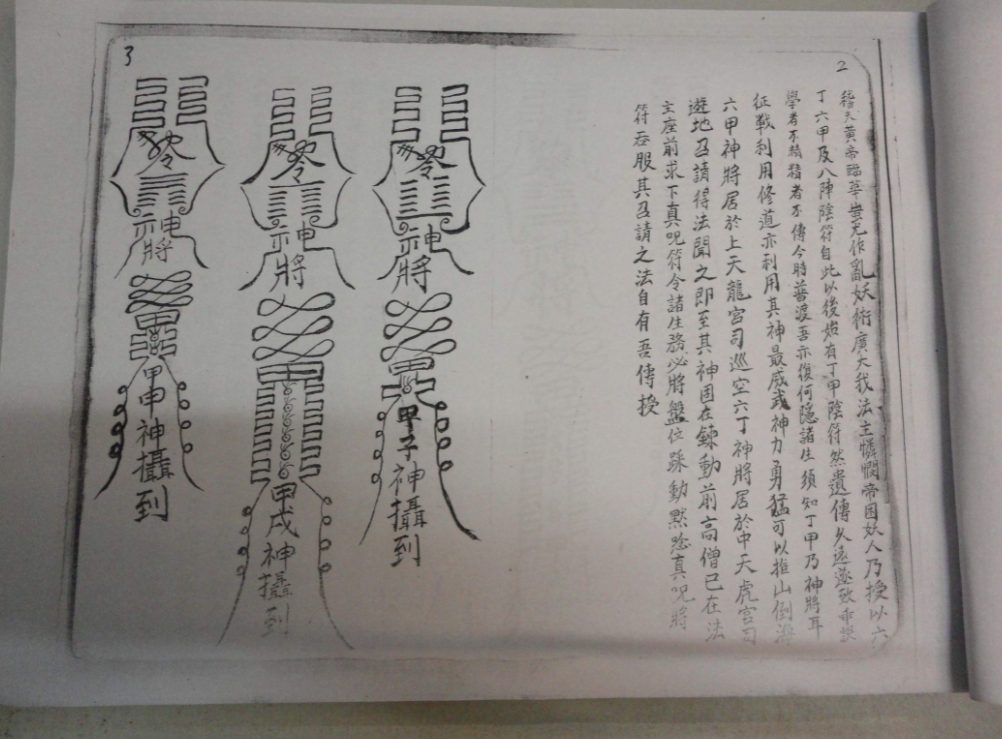 2
稽夫黄帝臨華蚩尤作亂妖術廣大我法主憐憫帝困妖人乃授以六
丁六甲及八陣陰符自此以後始有丁甲陰符然遺傳久遠遂致乖誤
學者不精精者不傳今時普渡吾亦復何隱諸生須知丁甲乃神將耳
征戰利用修道亦利用其神最威武神力勇猛可以推山倒海
六甲神將居於上天龍宮司巡空六丁神將居於中天虎宮司
遊地召請得法聞之即至其神固在鍊動前高僧已在法
主座前求下真呪符令諸生務必將盤位踩動默念真呪將
符吞服其召請之法自有吾傳授
3
零神將甲子神攝到
零神將甲戌神攝到
零神將甲申神攝到